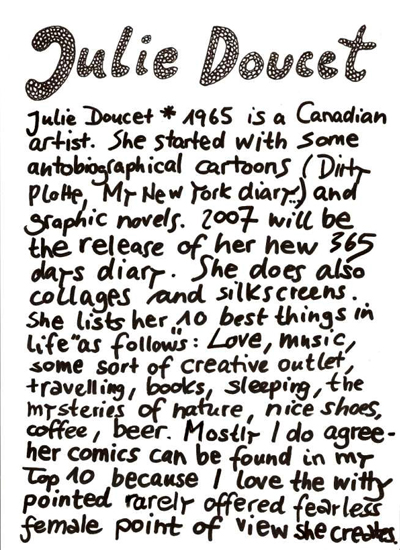 Julie Doucet
Julie Doucet * 1965 is a Canadian
artist. She started with some
autobiographical cartoons (Dirty
Plotte, My New York diary..) and
graphic novels. 2007 will be
the release of her new 365
days diary. She does also
collages and silkscreens.
She lists her "10 best things in
life" as follows: Love, music,
some sort of creative outlet,
travelling, books, sleeping, the
mysteries of nature, nice shoes,
coffee, beer. Mostly I do agree-
her comics can be found in my
Top 10 because I love the witty
pointed rarely offered fearless
female point of view she creates.